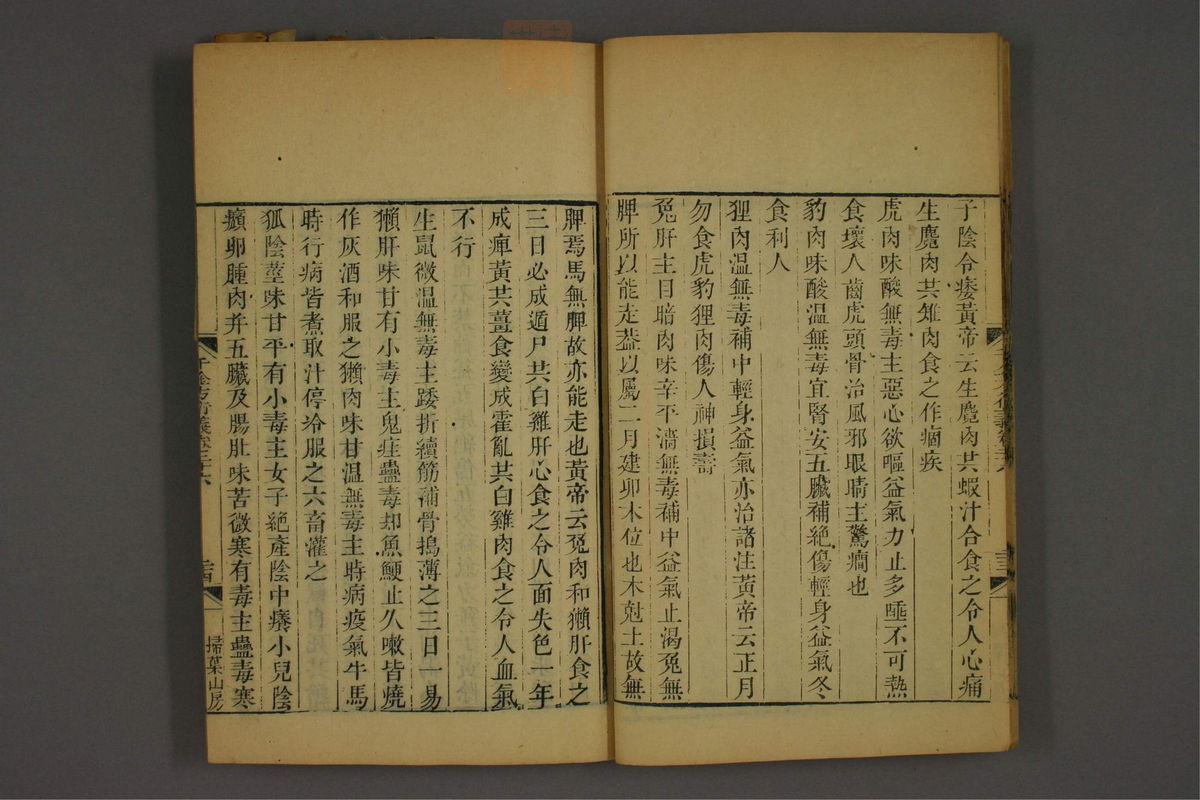 子陰令痿黃帝云生麞肉共蝦汁合食之令人心痛
生麞肉共雉肉食之作痼疾
虎肉味酸無毒主惡心欲嘔益氣力止多唾不可熱
食壞人齒虎頭骨治風邪眼睛主驚癎也
豹肉味酸溫無毒宜腎安五臟補絶傷輕身益氣冬
食利人
狸肉溫無毒補中輕身益氣亦治諸注黃帝云正月
勿食虎豹狸肉傷人神損壽
兔肝主目暗肉味辛平濇無毒補中益氣止渴兔無
脾所以能走葢以屬二月建卯木位也木尅土故無
脾焉馬無脾故亦能走也黃帝云兔肉和獺肝食之
三日必成遁尸共白雞肝心食之令人面失色一年
成瘅黃共薑食變成霍亂共白雞肉食之令人血氣
不行
生鼠微溫無毒主踒折續筋補骨搗薄之三日一易
獺肝味甘有小毒主鬼疰蠱毒却魚鯁止久嗽皆燒
作灰酒和服之獺肉味甘溫無毒主時病疫氣牛馬
時行病皆煮取汁停冷服之六畜灌之
狐陰莖味甘平有小毒主女子絶產陰中癢小兒陰
㿗卵腫肉并五臟及腸肚味苦微寒有毒主蠱毒寒
千金方衍義卷二十六
三四
掃葉山房